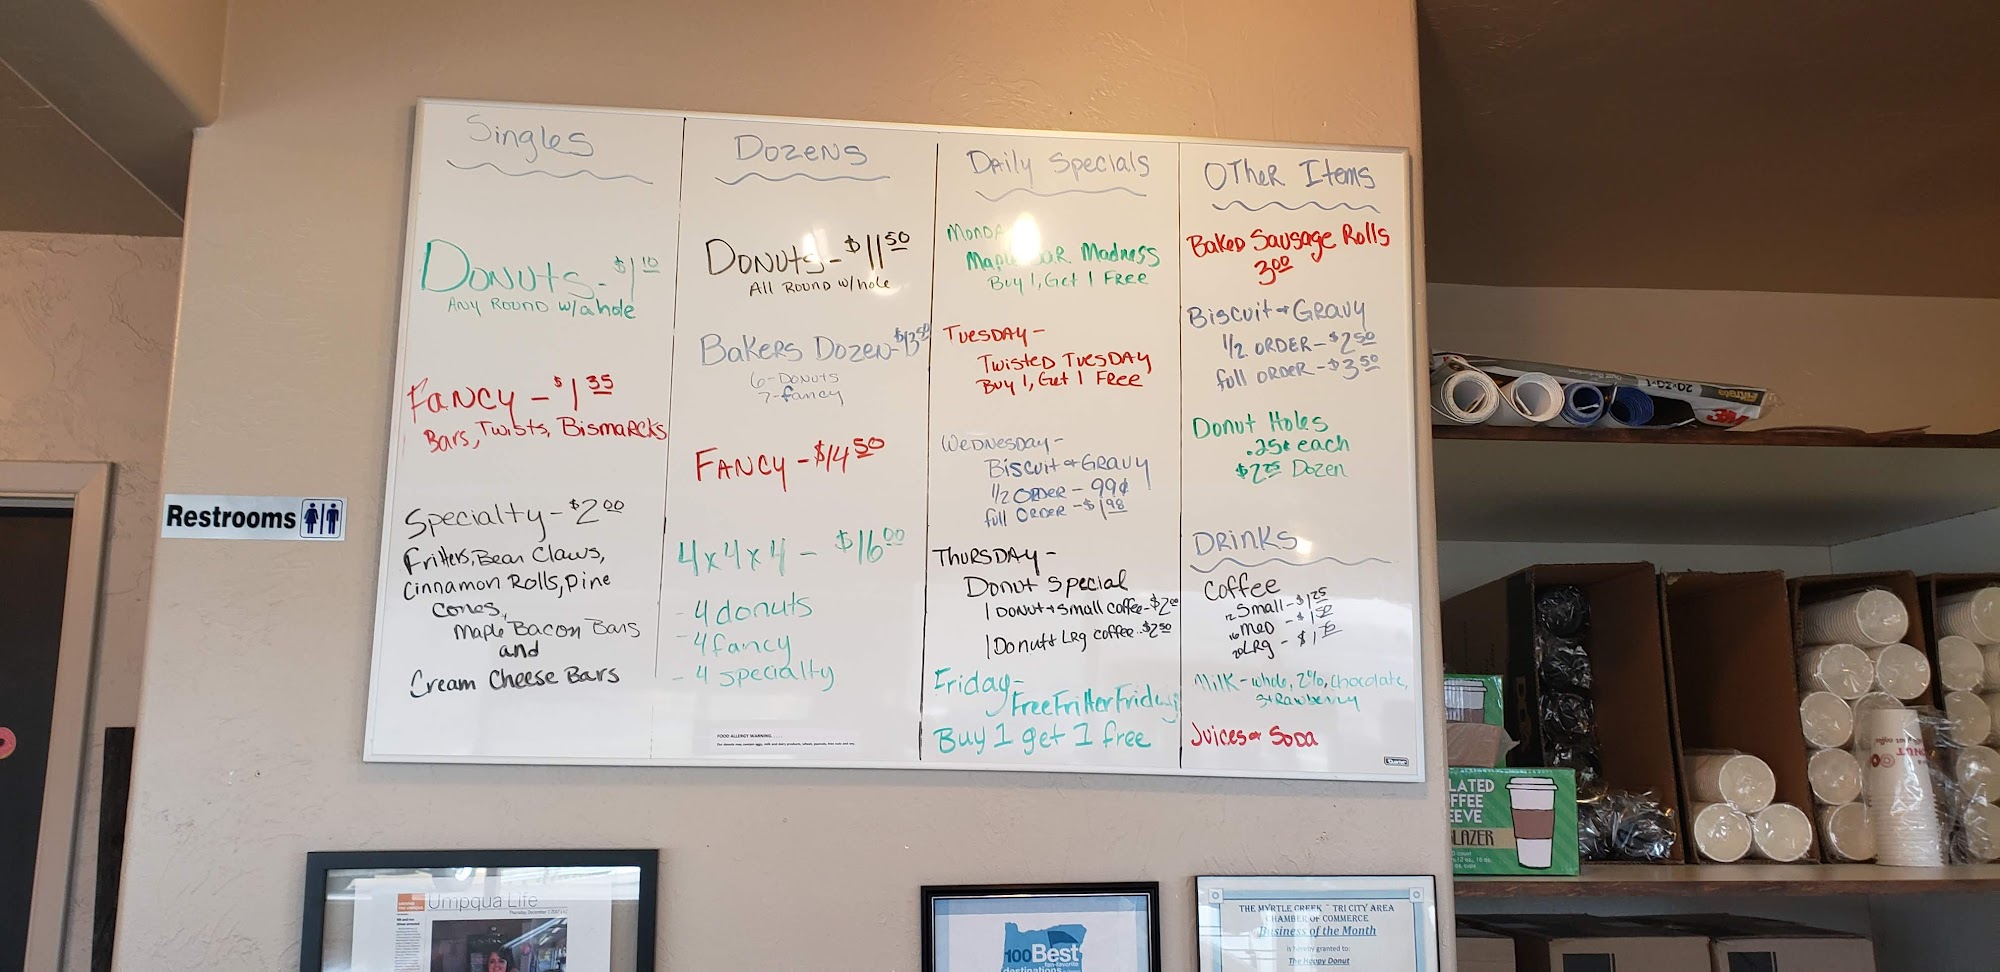 Singles
Donuts - $1.10
Any Round w/a hole
Fancy - $1.35
Bars, Twists, Bismarcks
Specialty - $2.00
Fritters, Bear Claws,
Cinnamon Rolls, Pine
Cones,
Maple Bacon Bars
and
Cream Cheese Bars
Dozens
Donuts - $11.50
All Round w/hole
Bakers Dozen - $13.50
6 - Donuts
7 - fancy
Fancy - $14.50
4x4x4 - $16.00
- 4 donuts
- 4 fancy
- 4 specialty
FOOD ALLERGY WARNING....
Our donuts may contain eggs, milk and dairy products, wheat, peanuts, tree nuts and soy.
Daily Specials
Monda
Maple Madness
Buy 1, Get 1 Free
Tuesday -
Twisted Tuesday
Buy 1, Get 1 Free
Wednesday -
Biscuit & Gravy
1/2 Order - 99¢
full Order - $1.98
Thursday -
Donut Special
1 Donut + Small coffee - $2.00
1 Donut + Lrg coffee - $2.50
Friday -
Free Fritter Friday
Buy 1 get 1 free
Other Items
Baked Sausage Rolls
3.00
Biscuit & Gravy
1/2 Order - $2.50
full Order - $3.50
Donut Holes
.25¢ each
$2.25 Dozen
Drinks
Coffee
12 Small - $1.25
16 Med - $1.50
20 Lrg - $1.75
Milk - whole, 2%, Chocolate,
Strawberry
Juices & Soda
Quartet
Restrooms
20x20x1
Filtrete
3M
LATED
FFEE
EEVE
LAZER
Umpqua Life
Thursday, December 7, 2017
100 Best
fan-favorite
destinations
THE MYRTLE CREEK ~ TRI CITY AREA
CHAMBER OF COMMERCE
Business of the Month
is hereby granted to:
The Happy Donut